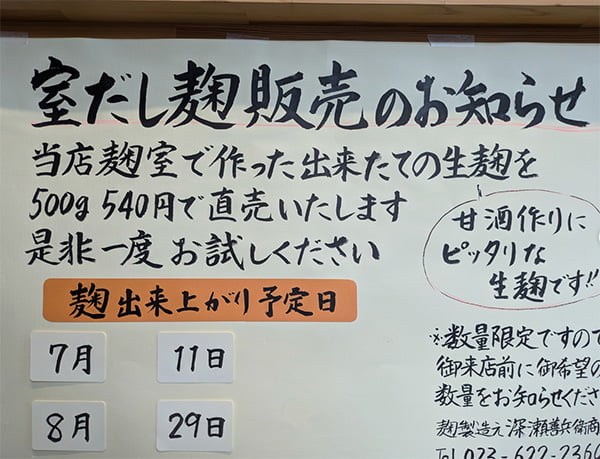 室だし麹販売のお知らせ
当店麹室で作った出来たての生麹を
500g 540円で直売いたします
是非一度 お試しください
甘酒作りに
ピッタリな
生麹です!!
麹出来上がり予定日
7月 11日
8月 29日
※数量限定ですので
御来店前に御希望の
数量をお知らせくださ
麹製造元深瀬善兵衛商
Tel 023-622-2360